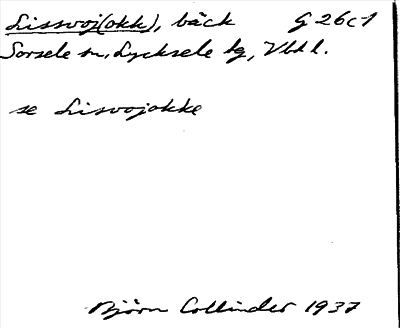 Lissvoj(okk), bäck G 26c1
Sorsele sn, Lycksele lg, Vbtl.
se Lisvojokke
Björn Collinder 1937